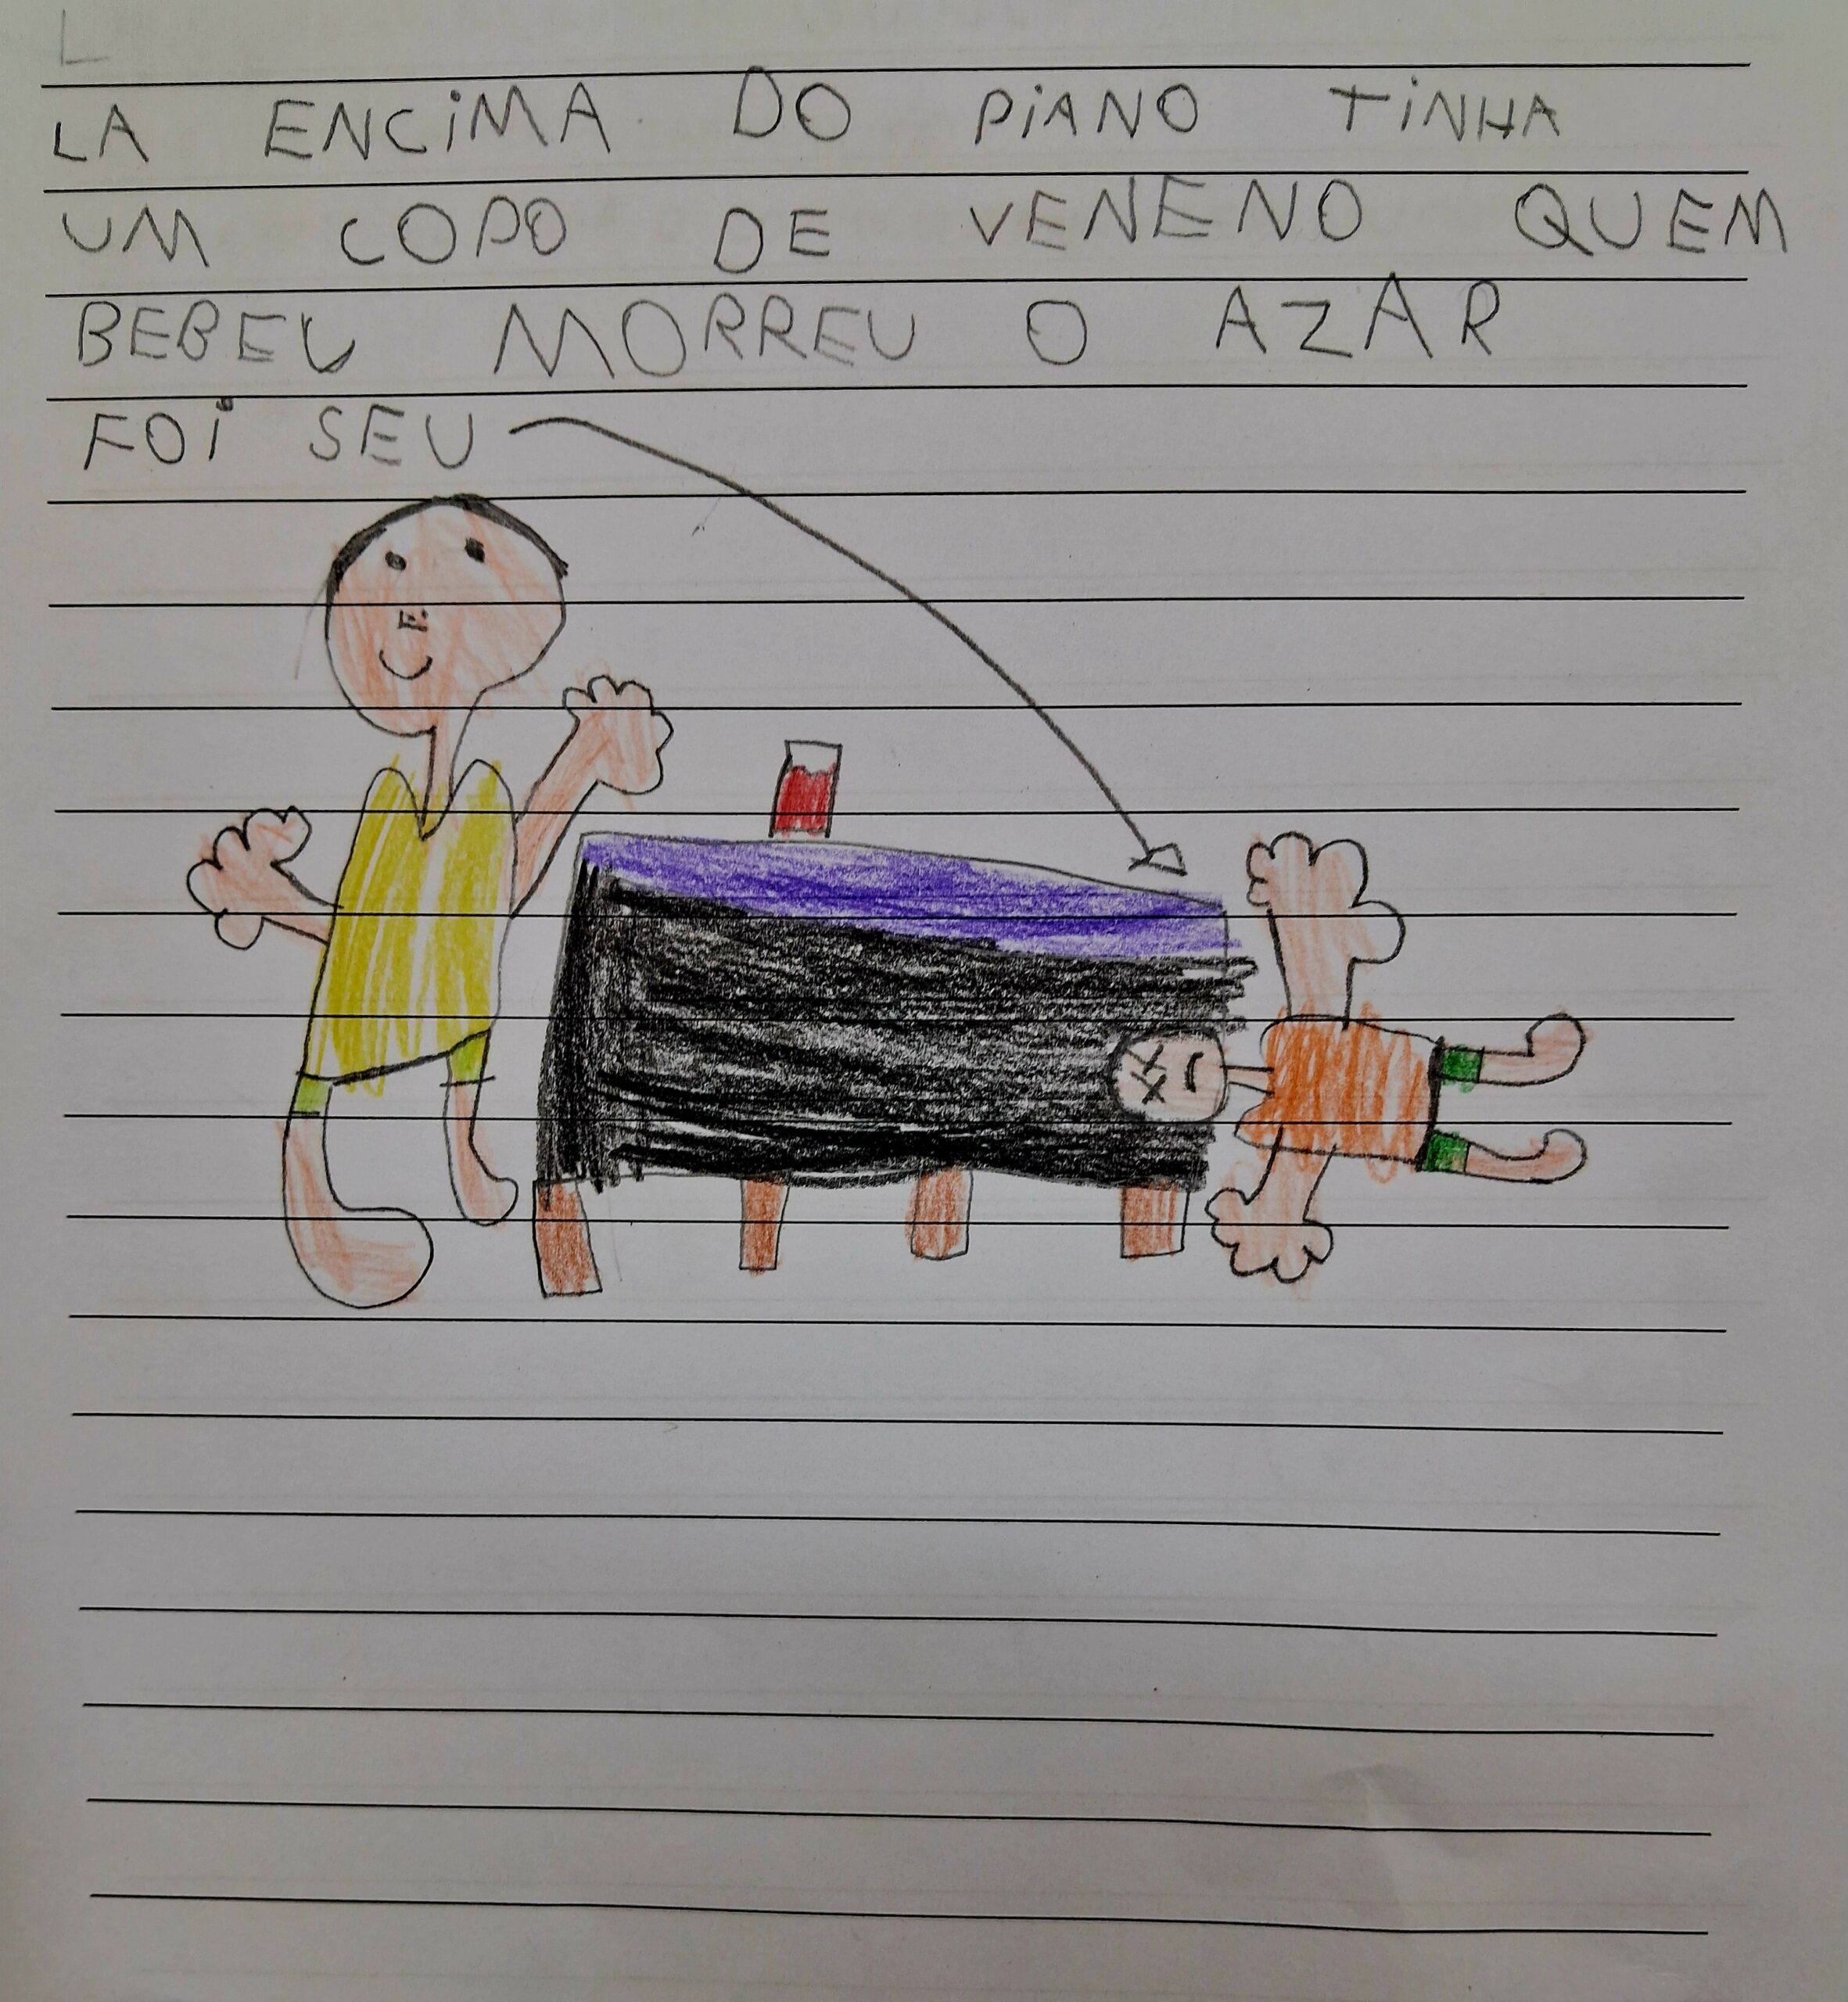 L
LA ENCiMA DO PiANO TiNHA
UM COPO DE VENENO QUEM
BEBEU MORREU O AZAR
FOi SEU